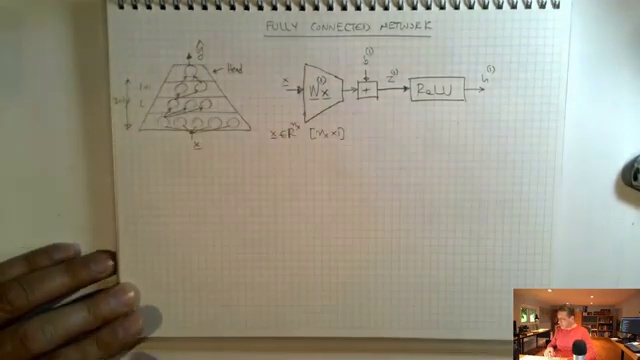 FULLY CONNECTED NETWORK
ŷ
Head
L
x
x
W^(1) x
b^(1)
+
z^(1)
ReLU
h^(1)
x ∈ R^nx [nx × 1]